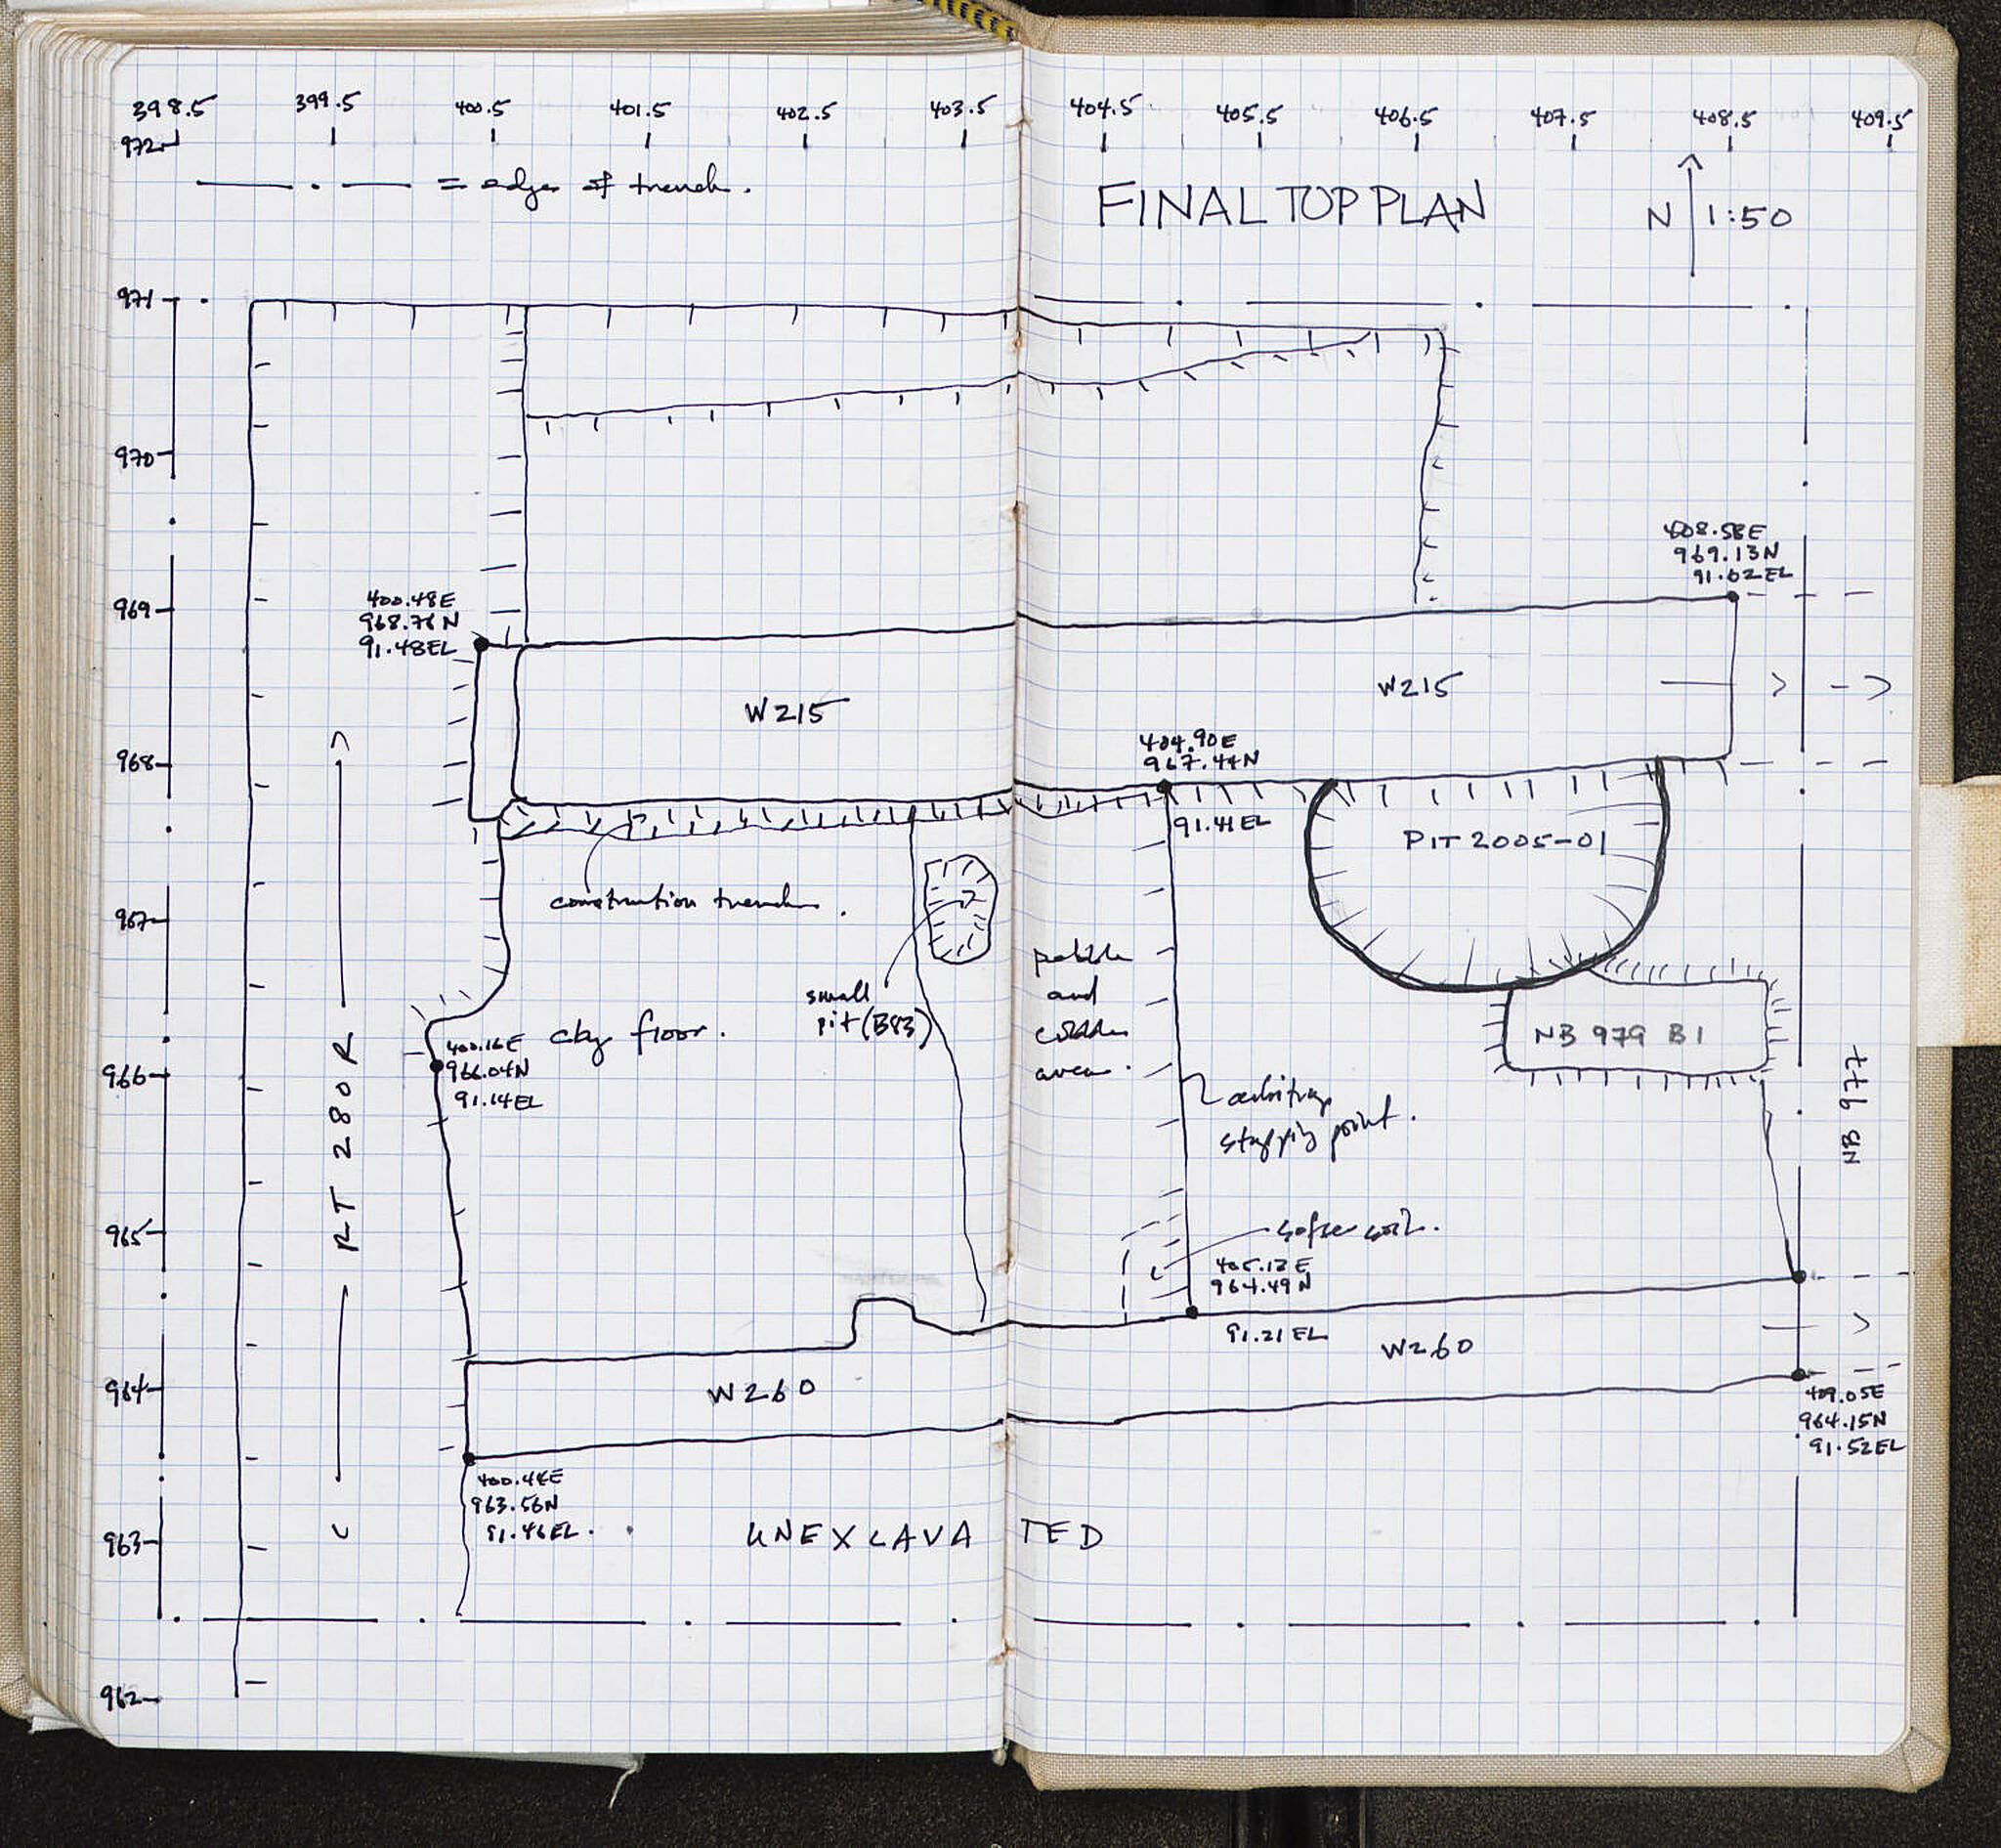 398.5 399.5 400.5 401.5 402.5 403.5 404.5 405.5 406.5 407.5 408.5 409.5
972
= edge of trench.
FINAL TOP PLAN
N 1:50
971
970
408.58E
969.13N
91.62EL
969
400.48E
968.76N
91.48EL
W215
W215
968
404.90E
967.44N
91.41EL
PIT 2005-01
construction trench.
967
pebble
and
cobble
area.
small
pit (B83)
clay floor.
NB 979 B1
NB 977
RT 280R
966
400.16E
966.04N
91.14EL
arbitrary
stopping point.
965
softer soil.
405.12E
964.49N
91.21EL
W260
W260
964
409.05E
964.15N
91.52EL
400.44E
963.56N
91.46EL.
963
UNEXCAVATED
962